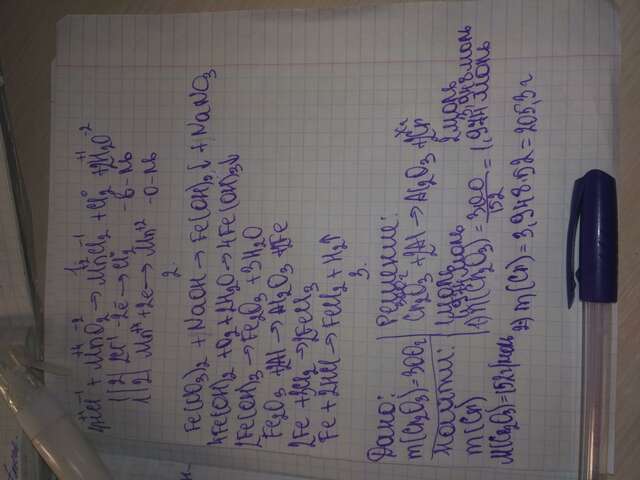 1.
4HCl + MnO₂ → MnCl₂ + Cl₂ + 2H₂O
+1 -1 +4 -2 +2 -1 0 +1 -2
1|2| 2Cl⁻ -2e → Cl₂⁰ -в-ль
1|2| Mn⁺⁴ +2e → Mn⁺² -о-ль
2.
Fe(NO₃)₂ + NaOH → Fe(OH)₂↓ + NaNO₃
4Fe(OH)₂ + O₂ + 2H₂O → 4Fe(OH)₃↓
2Fe(OH)₃ → Fe₂O₃ + 3H₂O
Fe₂O₃ + 2Al → Al₂O₃ + 2Fe
2Fe + 3Cl₂ → 2FeCl₃
Fe + 2HCl → FeCl₂ + H₂↑
3.
Дано:
m(Cr₂O₃)=300г
Найти:
m(Cr)
M(Cr₂O₃)=152г/моль
Решение:
300г xг
Cr₂O₃ + 2Al → Al₂O₃ + 2Cr
1моль 2моль
1,974моль 3,948моль
1) n(Cr₂O₃) = 300/152 = 1,974моль
2) m(Cr) = 3,948·52 = 205,3 г